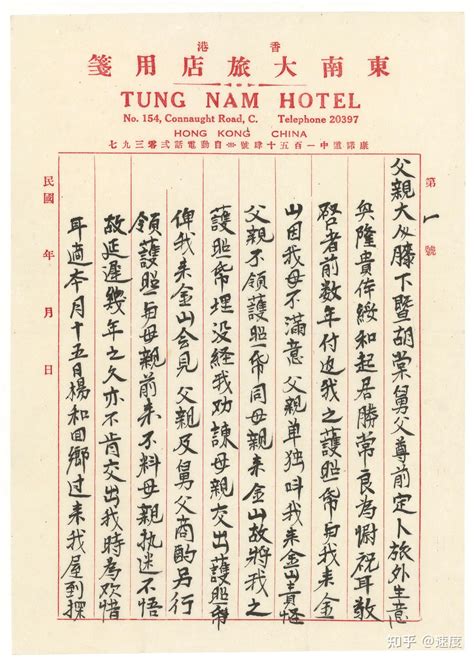 香港
東南大旅店用箋
TUNG NAM HOTEL
No. 154, Connaught Road, C. Telephone 20397
HONG KONG CHINA
康諾道中一百五十肆號 自動電話弍零三九七
第一號
父親大人膝下暨胡棠舅父尊前定卜旅外生意
興隆貴体綏和起居勝常良為慰祝耳敬
啓者前数年付返我之護照帋与我来金
山因我母不滿意父親单独叫我来金山責怪
父親不领護照一帋同母親来金山故將我之
護照帋埋没経我劝諫母親交出護照帋
俾我来金山会見父親及舅父商酌另行
领護照与母親前来不料母親执迷不悟
故延遲幾年之久亦不肯交出我時為欢惜
耳適本月十五日楊和囬鄉过来我屋到探
民國 年 月 日
知乎 @速度